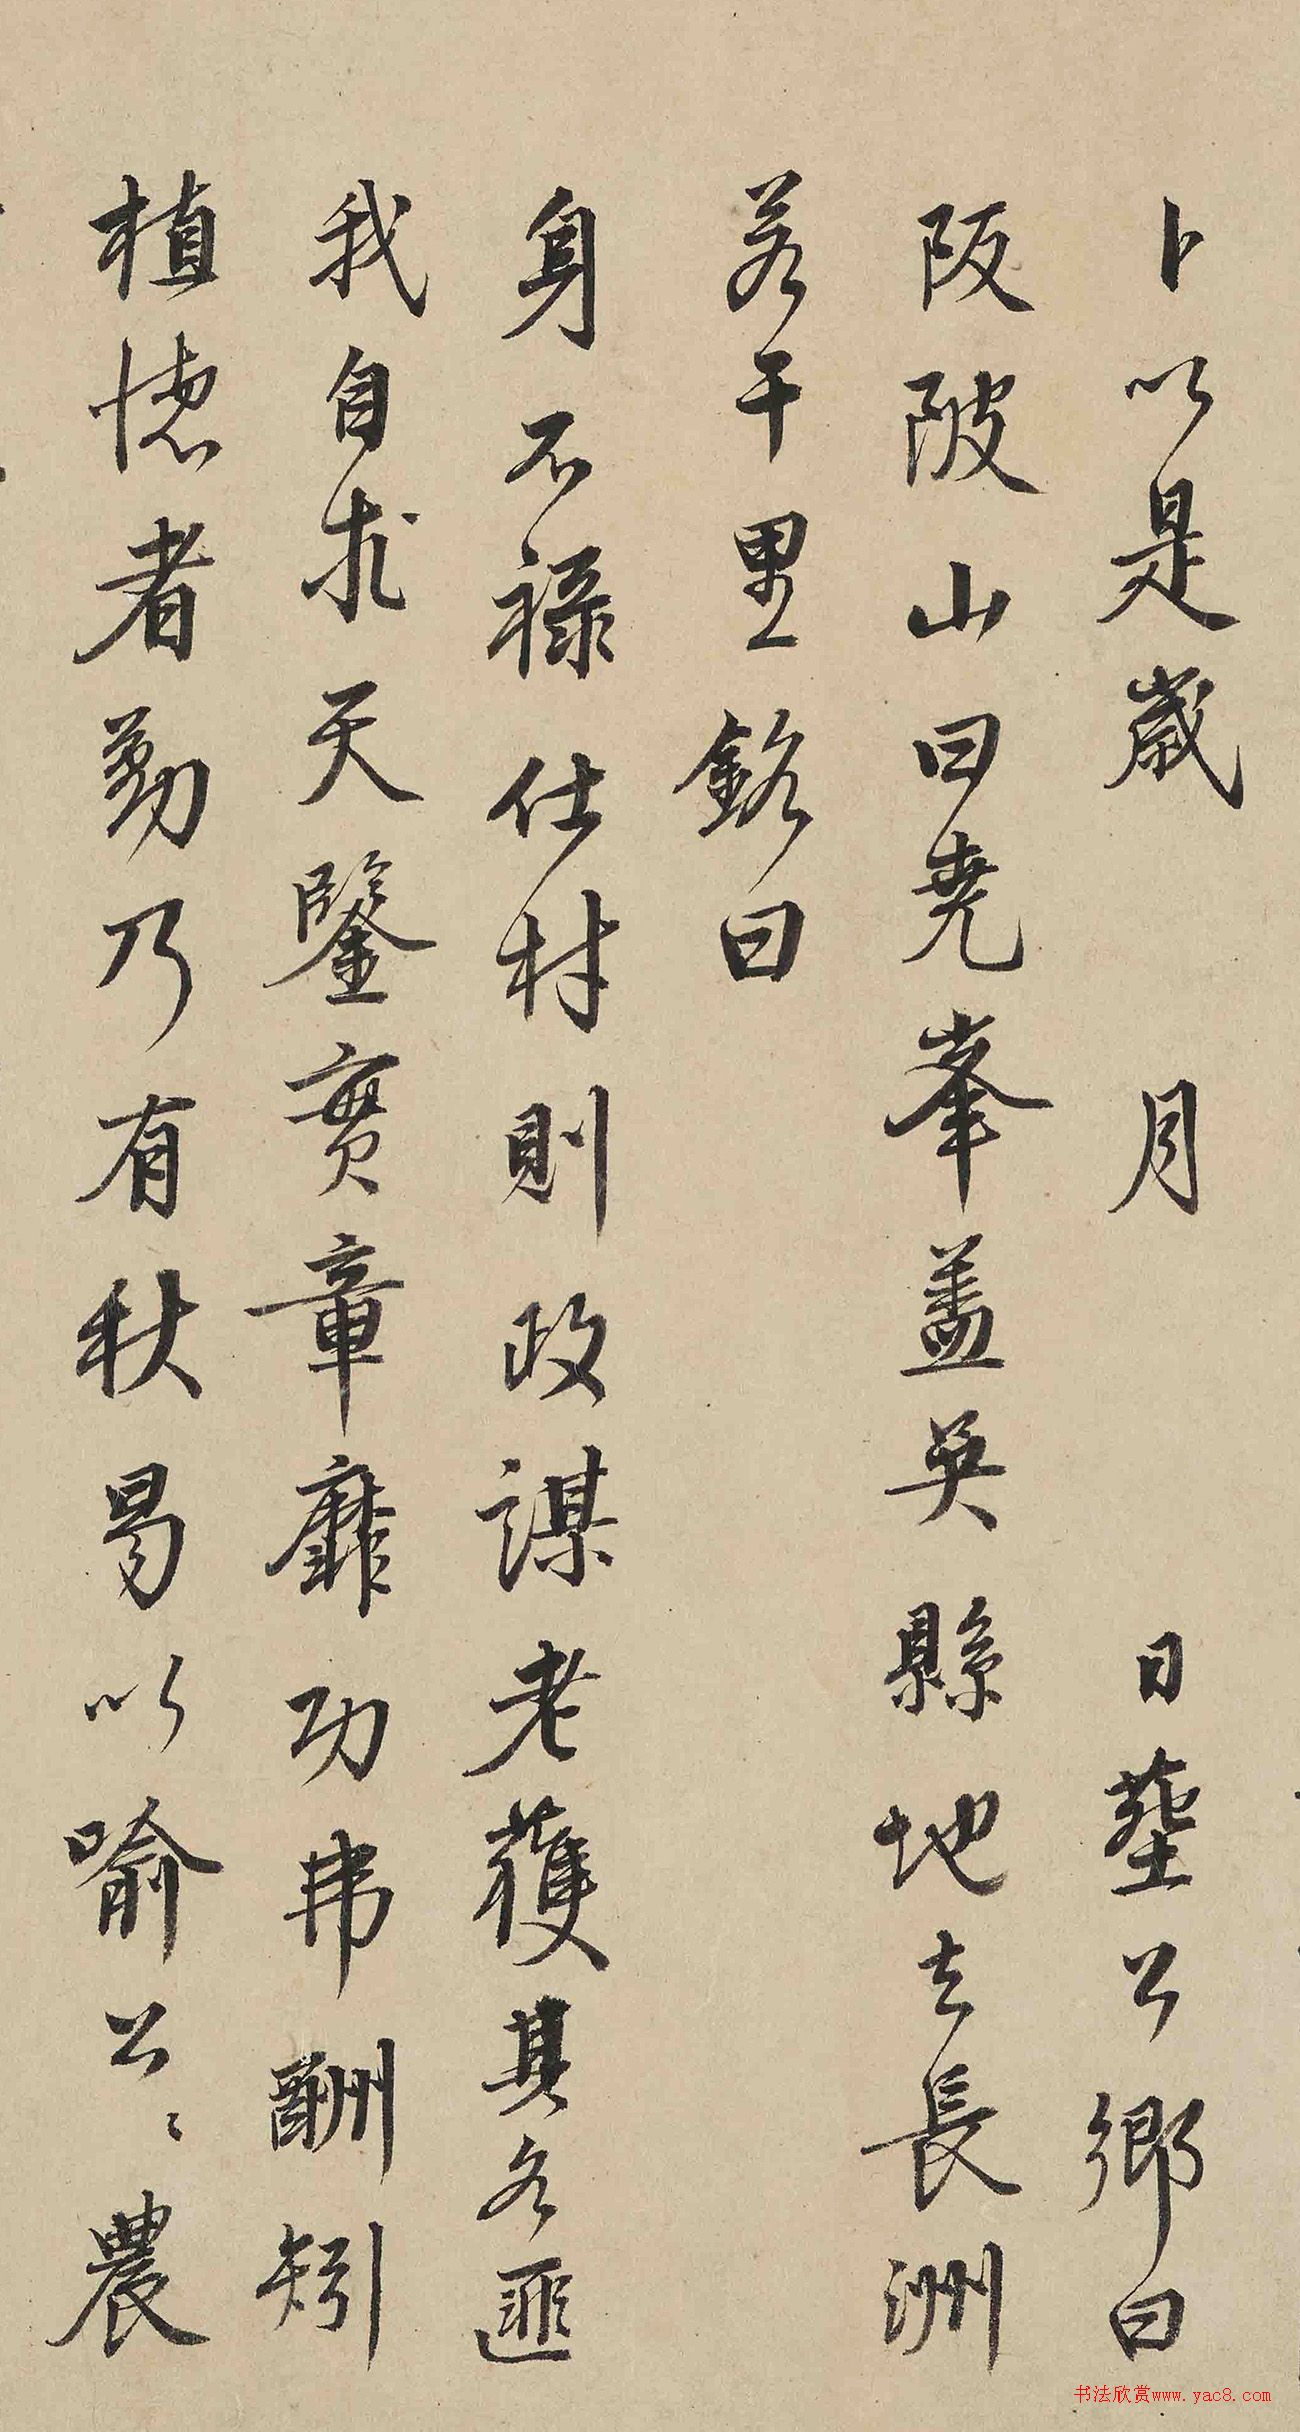 卜以是歲　月　日塟公鄉曰
阪陂山曰堯峯盖吳縣地去長洲
若干里銘曰
身不禄仕材則政謀老獲其名匪
我自求天鑒實章靡功弗酬矧
植德者勤乃有秋曷以喻公〻農
书法欣赏www.yac8.com